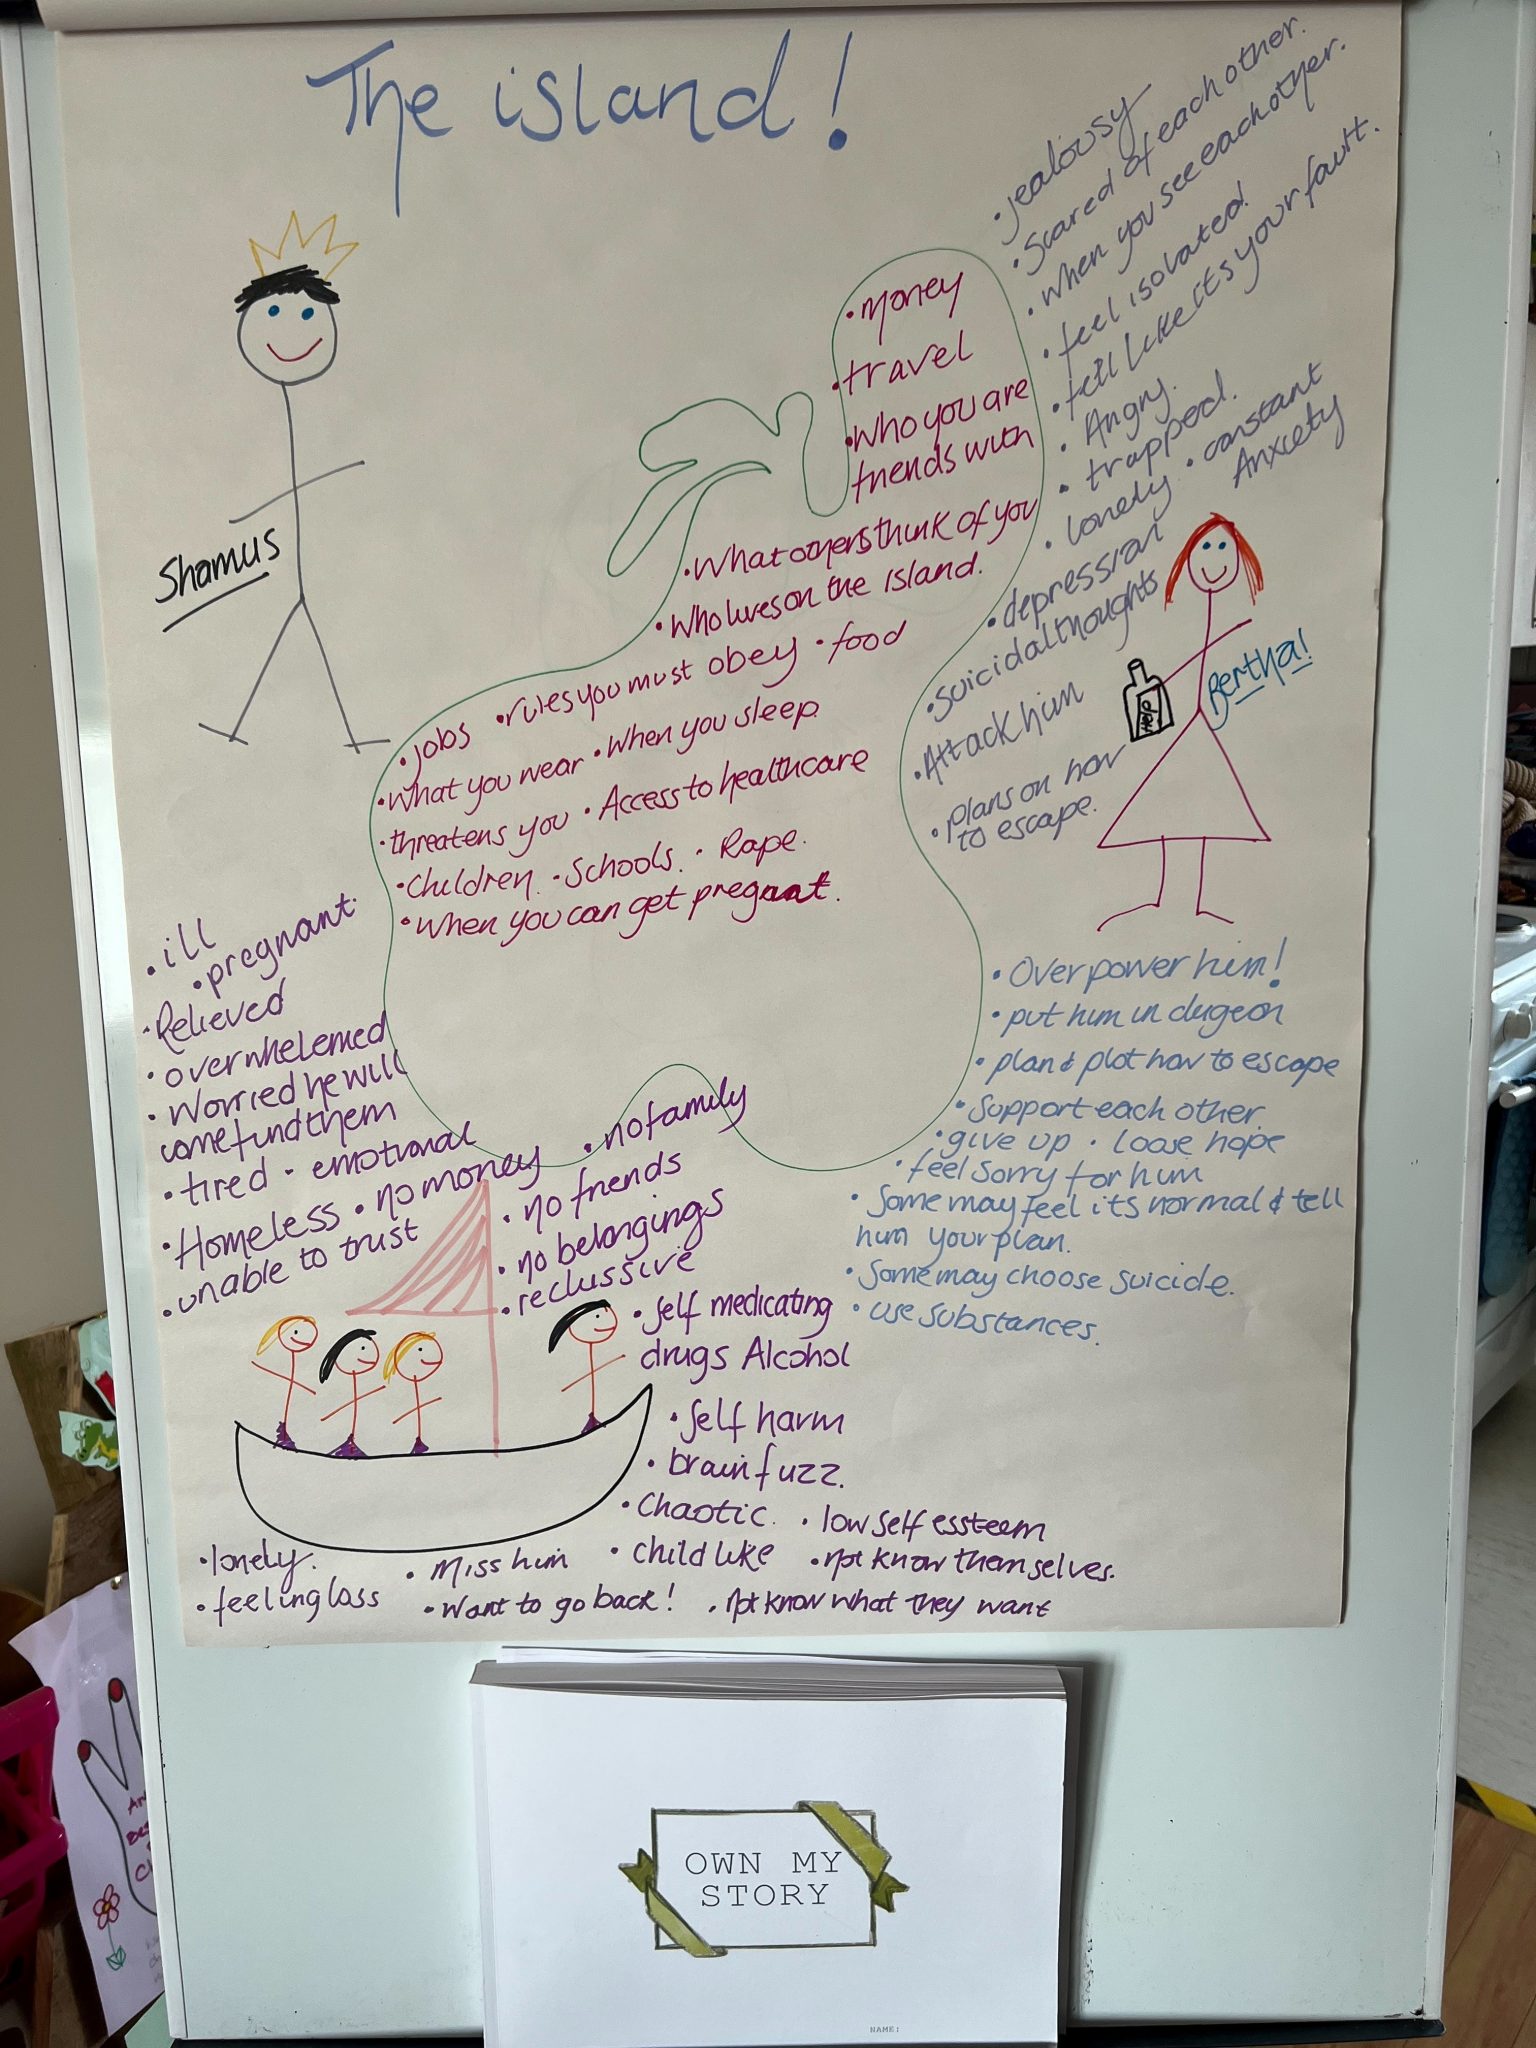 The island!
Shamus
• Jealousy
• Scared of each other.
• when you see each otyer.
• feel isolated!
• fell like it's your fault.
• Angry.
• trapped. • constant
Anxiety
• lonely
• depression
• Suicidal thoughts
• Attack him
• plans on how
to escape.
Help
Bertha!
• Money
• travel
• Who you are
friends with
• What others think of you
• Who lives on the island.
• rules you must obey • food
• jobs
• what you wear • When you sleep
• threatens you • Access to healthcare
• Children. • Schools. • Rape.
• When you can get pregnant.
• ill
• pregnant.
• Relieved
• overwhelemed
• Worried he will
come fund them
• tired • emotional
• Homeless • no money
• unable to trust
• no family
• no friends
• no belongings
• reclussive
• Self medicating
drugs Alcohol
• Self harm
• brain fuzz.
• Chaotic. • low self essteem
• Child like • Not know themselves.
• lonely. • Miss him
• feeling loss • Want to go back! • Not know what they want
• Over power him!
• put him in dugeon
• plan & plot how to escape
• Support each other.
• give up • loose hope
• feel sorry for him
• Some may feel its normal & tell
him your plan.
• Some may choose suicide.
• use substances.
OWN MY
STORY
NAME: